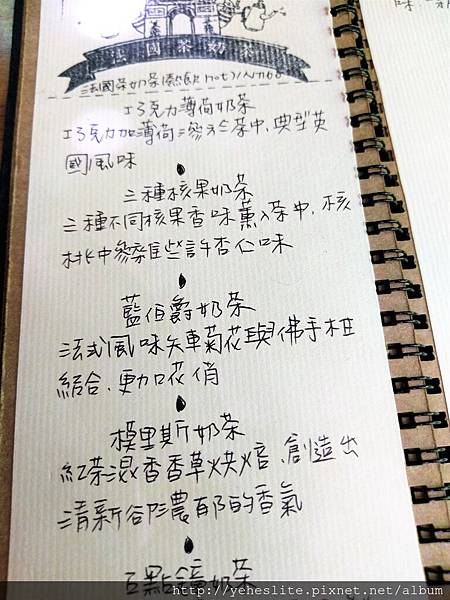 味
法國茶奶茶
法國茶奶茶(熱飲 hot)/NT160
巧克力薄荷奶茶
巧克力加薄荷滲於茶中,典型英
國風味
三種核果奶茶
三種不同核果香味薰入茶中,核
桃中滲雜些許杏仁味
藍伯爵奶茶
法式風味矢車菊花與佛手柑
結合、更加花俏
模里斯奶茶
紅茶混香香草烘焙、創造出
清新卻濃郁的香氣
五點鐘奶茶
http://yeheslite.pixnet.net/album